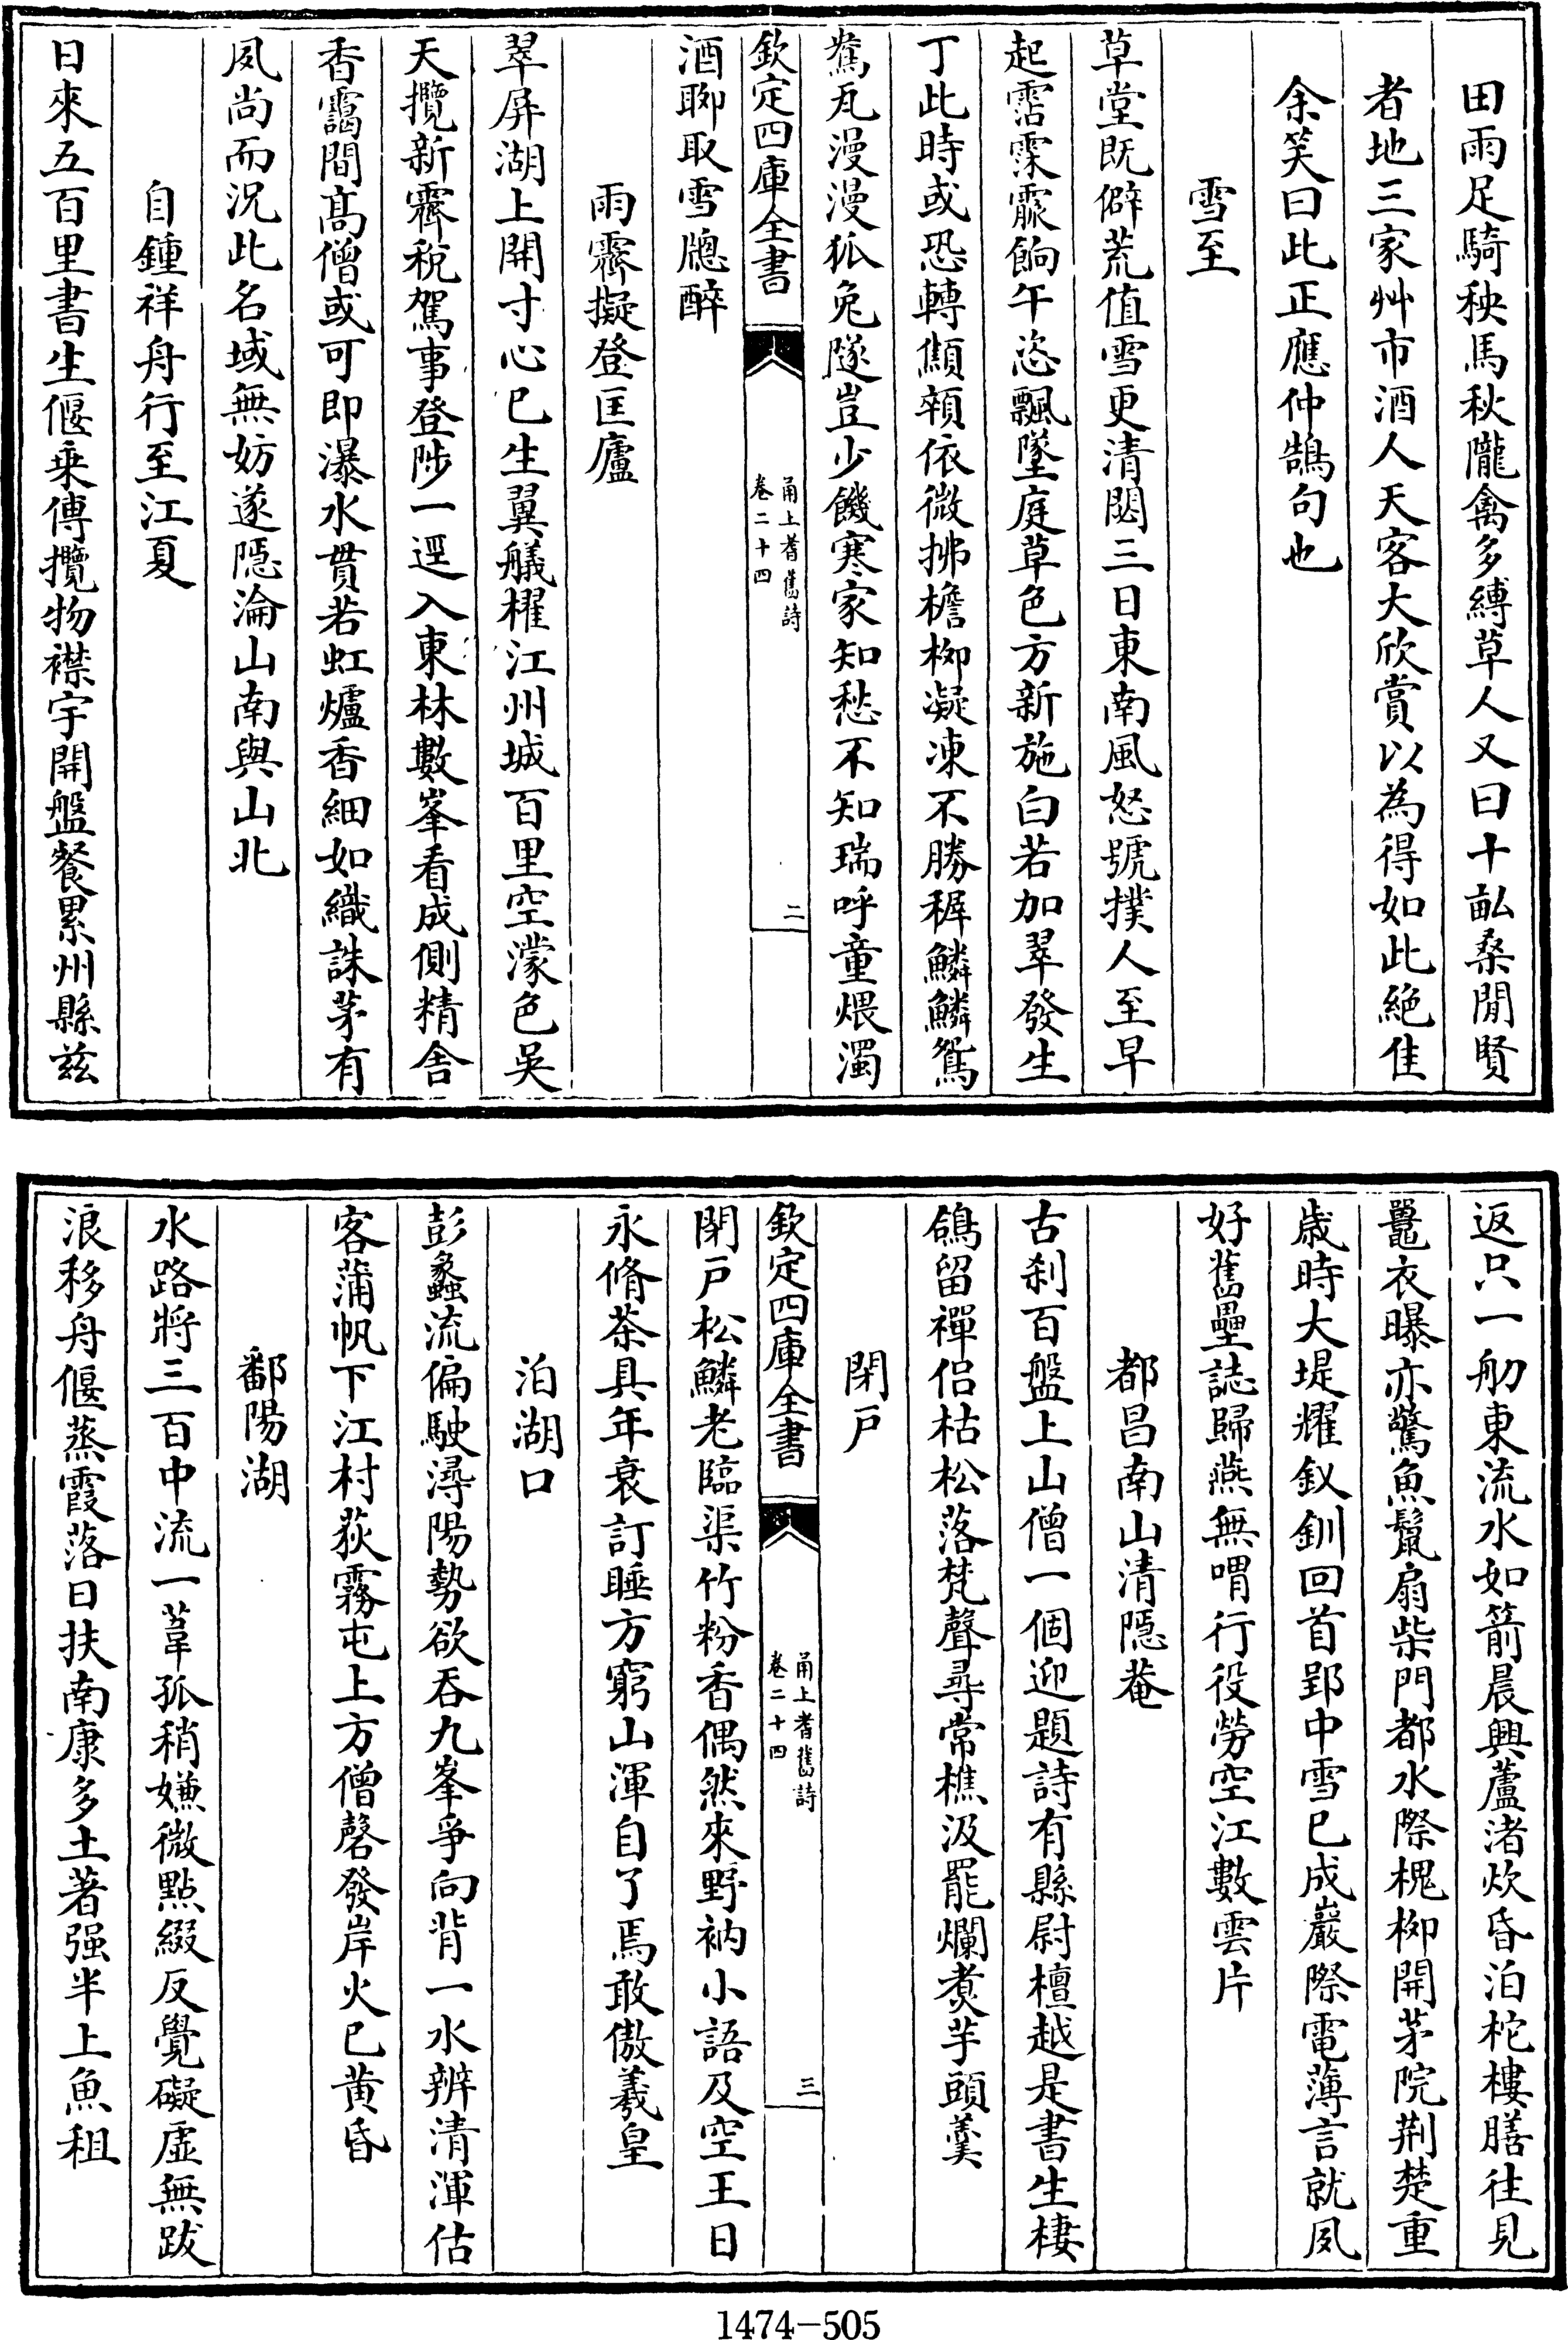 田雨足騎秧馬秋隴禽多縛草人又曰十畆桑閒賢
者地三家艸市酒人天客大欣賞以為得如此絶佳
余笑曰此正應仲鵠句也
雪至
草堂既僻荒值雪更清閟三日東南風怒號撲人至早
起霑霂霢餉午恣飄墜庭草色方新施白若加翠發生
丁此時或恐轉顦顇依微拂檐栁凝凍不勝穉鱗鱗鴛
鴦瓦漫漫狐兔隧豈少饑寒家知愁不知瑞呼童煨濁
欽定四庫全書
甬上耆舊詩
卷二十四
二
酒聊取雪牕醉
雨霽擬登匡廬
翠屏湖上開寸心已生翼艤櫂江州城百里空濛色吳
天攬新霽稅駕事登陟一逕入東林數峯看成側精舍
香靄間髙僧或可即瀑水貫若虹爐香細如織誅茅有
夙尚而況此名域無妨遂隠淪山南與山北
自鍾祥舟行至江夏
日來五百里書生偃乗傳攬物襟宇開盤餐累州縣兹
返只一舠東流水如箭晨興蘆渚炊昏泊柁樓膳往見
鼉衣曝亦驚魚鬛扇柴門都水際槐栁開茅院荆楚重
歳時大堤耀釵釧回首郢中雪已成巖際電薄言就夙
好舊壘誌歸燕無喟行役勞空江數雲片
都昌南山清隠菴
古刹百盤上山僧一個迎題詩有縣尉檀越是書生棲
鴿留禪侣枯松落梵聲尋常樵汲罷爛煑芋頭羹
閉戸
欽定四庫全書
甬上耆舊詩
卷二十四
三
閉戸松鱗老臨渠竹粉香偶然來野衲小語及空王日
永脩茶具年衰訂睡方窮山渾自了焉敢傲羲皇
泊湖口
彭蠡流偏駛潯陽勢欲吞九峯爭向背一水辨清渾估
客蒲帆下江村荻霧屯上方僧磬發岸火已黄昏
鄱陽湖
水路將三百中流一葦孤稍嫌微點綴反覺礙虛無跋
浪移舟偃蒸霞落日扶南康多土著强半上魚租
1474-505